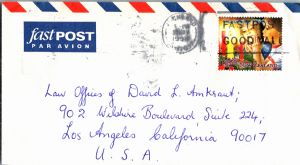 fast POST
PAR AVION
FASTER
GOODWILL
Law Offices of David L. Amkraut;
902 Wilshire Boulevard, Suite 224,
Los Angeles California 90017
U. S. A